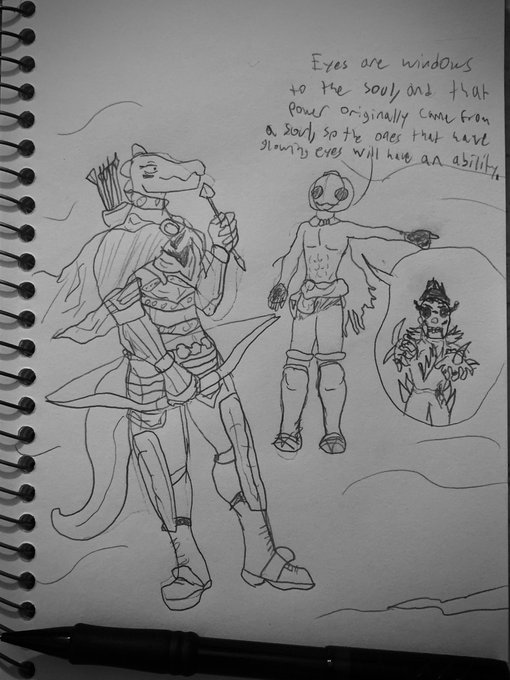 Eyes are windows
to the soul, and that
power originally came from
a soul, so the ones that have
glowing eyes will have an ability.